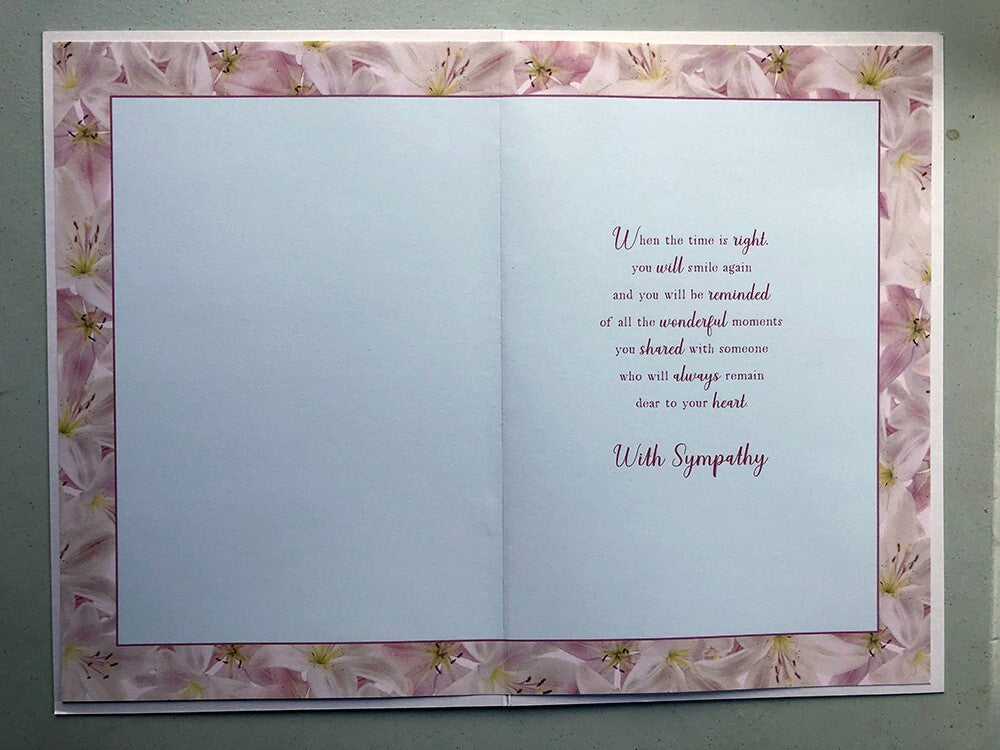 When the time is right,
you will smile again
and you will be reminded
of all the wonderful moments
you shared with someone
who will always remain
dear to your heart.
With Sympathy